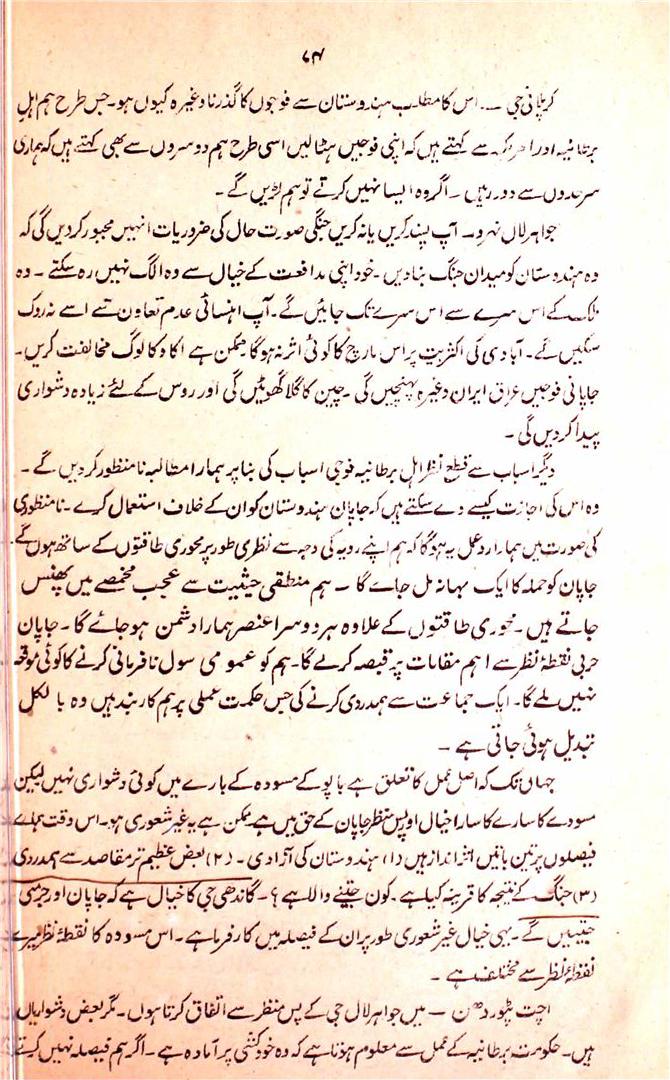 ۷۴
کرپلانی جی ــ۔ اس کا مطلب ہندوستان سے فوجوں کا گذرنا وغیرہ کیوں ہو۔ جس طرح ہم اہل
برطانیہ اور امریکہ سے کہتے ہیں کہ اپنی فوجیں ہٹالیں اسی طرح ہم دوسروں سے بھی کہتے ہیں کہ ہماری
سرحدوں سے دور رہیں ۔ اگر وہ ایسا نہیں کرتے تو ہم لڑیں گے ۔
جواہر لال نہرو۔ آپ پسند کریں یا نہ کریں جنگی صورت حال کی ضروریات انہیں مجبور کردیں گی کہ
وہ ہندوستان کو میدان جنگ بنادیں ۔ خود اپنی مدافعت کے خیال سے وہ الگ نہیں رہ سکتے ۔ وہ
ملک کے اس سرے سے اس سرے تک جائیں گے۔ آپ اہنسائی عدم تعاون سے اسے نہ روک
سکیں گے۔ آبادی کی اکثریت پر اس مارچ کا کوئی اثر نہ ہوگا ممکن ہے اکا دکا لوگ مخالفت کریں۔
جاپانی فوجیں عراق ایران وغیرہ پہنچیں گی ۔ چین کا گلا گھونٹیں گی اور روس کے لئے زیادہ دشواری
پیدا کردیں گی ۔
دیگر اسباب سے قطع نظر اہل برطانیہ فوجی اسباب کی بنا پر ہمارا مطالبہ نامنظور کردیں گے ۔
وہ اس کی اجازت کیسے دے سکتے ہیں کہ جاپان ہندوستان کو ان کے خلاف استعمال کرے ۔ نامنظوری
کی صورت میں ہمارا ردعمل یہ ہوگا کہ ہم اپنے رویہ کی وجہ سے نظری طور پر محوری طاقتوں کے ساتھ ہوں گے۔
جاپان کو حملہ کا ایک بہانہ مل جاے گا ۔ ہم منطقی حیثیت سے عجب مخمصے میں پھنس
جاتے ہیں ۔ محوری طاقتوں کے علاوہ ہر دوسرا عنصر ہمارا دشمن ہو جائے گا ۔ جاپان
حربی نقطۂ نظر سے اہم مقامات پر قبضہ کرلے گا۔ ہم کو عمومی سول نافرمانی کرنے کا کوئی موقعہ
نہیں ملے گا۔ ایک جماعت سے ہمدردی کرنے کی جس حکمت عملی پر ہم کاربند ہیں وہ بالکل
تبدیل ہوئی جاتی ہے ۔
جہاں تک کہ اصل عمل کا تعلق ہے باپو کے مسودہ کے بارے میں کوئی دشواری نہیں لیکن
مسودے کا سارے کا سارا خیال اور پس منظر جاپان کے حق میں ہے ممکن ہے یہ غیر شعوری ہو۔ اس وقت ہمارے
فیصلوں پر تین باتیں اثر انداز ہیں (۱) ہندوستان کی آزادی ۔ (۲) بعض عظیم تر مقاصد سے ہمدردی
(۳) جنگ کے نتیجہ کا قرینہ کیا ہے ۔ کون جیتنے والا ہے ؟ ۔ گاندھی جی کا خیال ہے کہ جاپان اور جرمنی
جیتیں گے ۔ یہی خیال غیر شعوری طور پر ان کے فیصلہ میں کارفرما ہے ۔ اس مسودہ کا نقطۂ نظر میرے
نقطۂ نظر سے مختلف ہے ۔
اچت پٹوردھن ــ میں جواہر لال جی کے پس منظر سے اتفاق کرتا ہوں ۔ مگر بعض دشواریاں
ہیں۔ حکومت برطانیہ کے عمل سے معلوم ہوتا ہے کہ وہ خودکشی پر آمادہ ہے ۔ اگر ہم فیصلہ نہیں کرتے